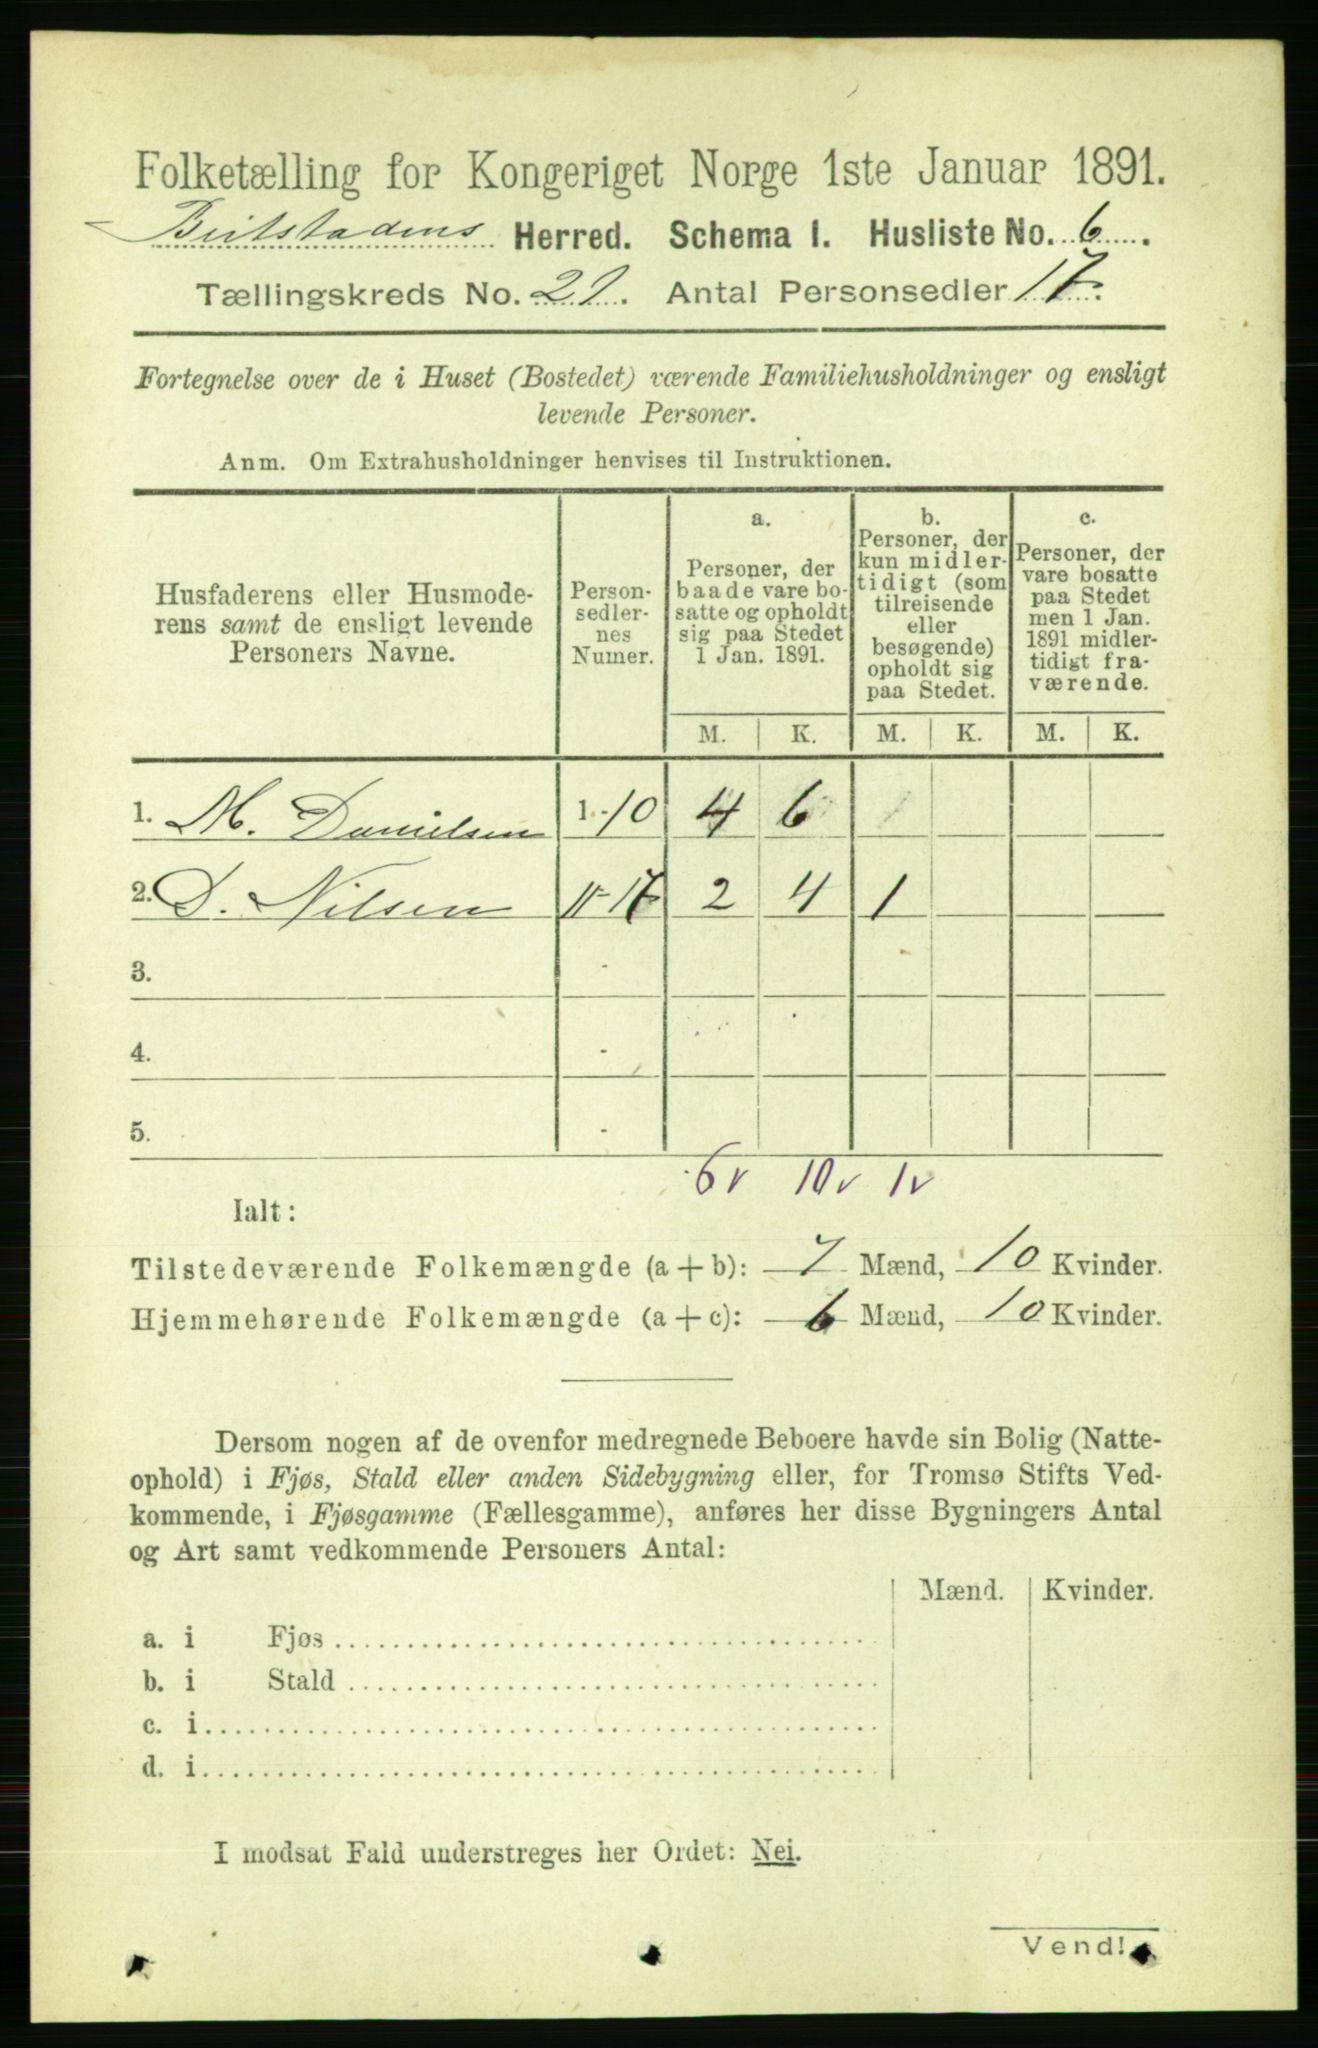 Folketælling for Kongeriget Norge 1ste Januar 1891.
Beitstadens Herred. Schema I. Husliste No. 6.
Tællingskreds No. 21. Antal Personsedler 17.
Fortegnelse over de i Huset (Bostedet) værende Familiehusholdninger og ensligt
levende Personer.
Anm. Om Extrahusholdninger henvises til Instruktionen.
Husfaderens eller Husmode-
rens samt de ensligt levende
Personers Navne.
Person-
sedler-
nes
Numer.
a.
Personer, der
baade vare bo-
satte og opholdt
sig paa Stedet
1 Jan. 1891.
b.
Personer, der
kun midler-
tidigt (som
tilreisende
eller
besøgende)
opholdt sig
paa Stedet.
c.
Personer, der
vare bosatte
paa Stedet
men 1 Jan.
1891 midler-
tidigt fra-
værende.
M. K. M. K. M. K.
1. M. Danielsen 1-10 4 6
2. D. Nilsen 11-17 2 4 1
3. -
4. -
5. -
6 v 10 v 1 v
Ialt:
Tilstedeværende Folkemængde (a + b): 7 Mænd, 10 Kvinder.
Hjemmehørende Folkemængde (a + c): 6 Mænd, 10 Kvinder.
Dersom nogen af de ovenfor medregnede Beboere havde sin Bolig (Natte-
ophold) i Fjøs, Stald eller anden Sidebygning eller, for Tromsø Stifts Ved-
kommende, i Fjøsgamme (Fællesgamme), anføres her disse Bygningers Antal
og Art samt vedkommende Personers Antal:
Mænd. Kvinder.
a. i Fjøs
b. i Stald
c. i
d. i
I modsat Fald understreges her Ordet: Nei.
Vend!